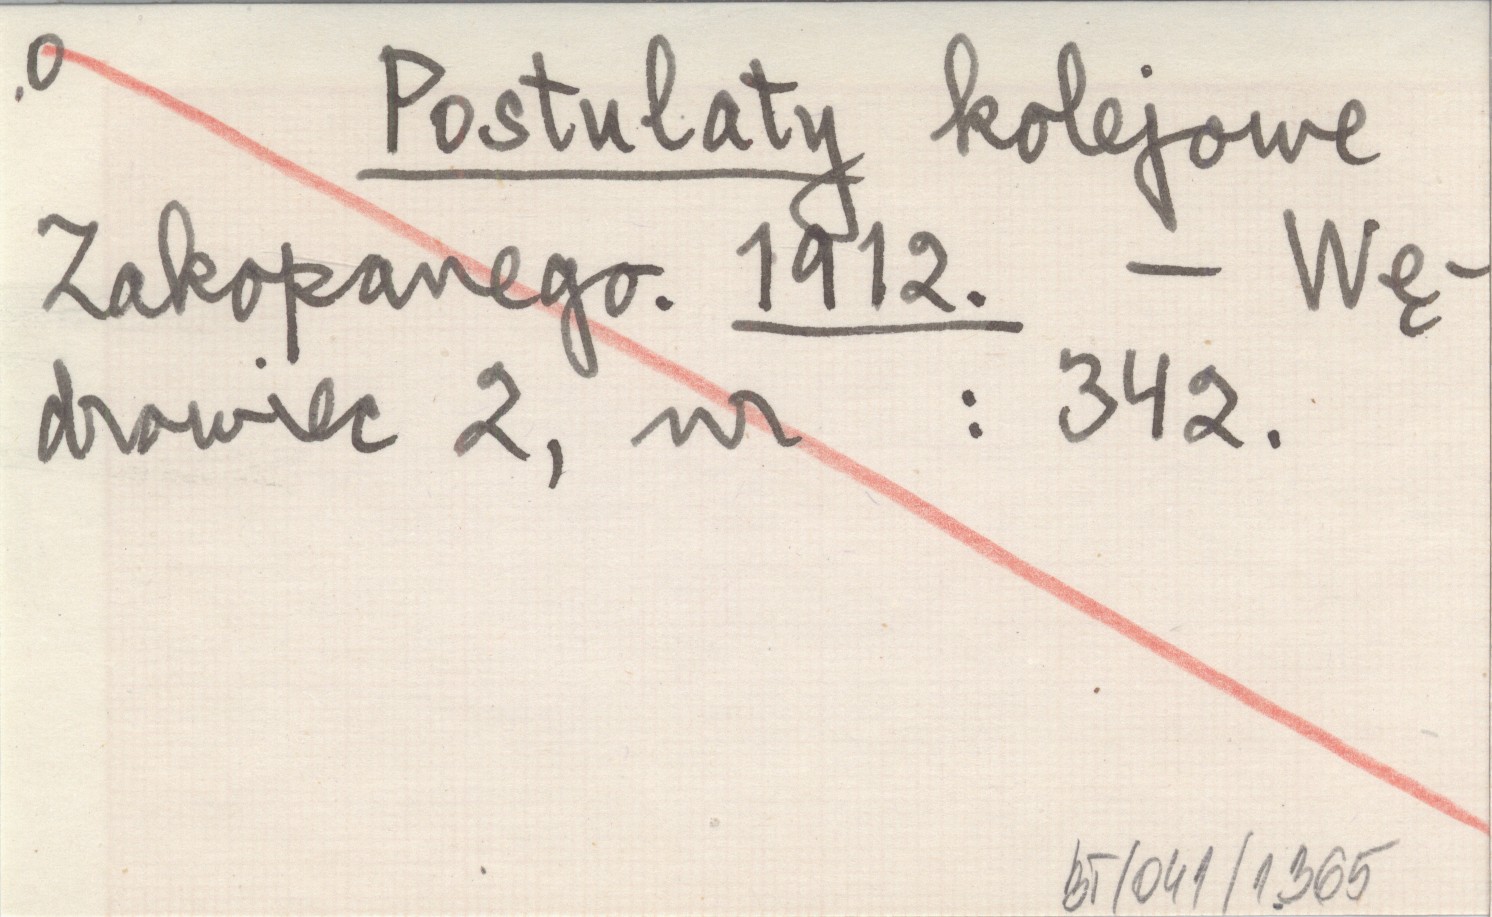 .0
Postulaty kolejowe
Zakopanego. 1912. — Wę-
drowiec 2, nr : 342.
BT/041/1.365